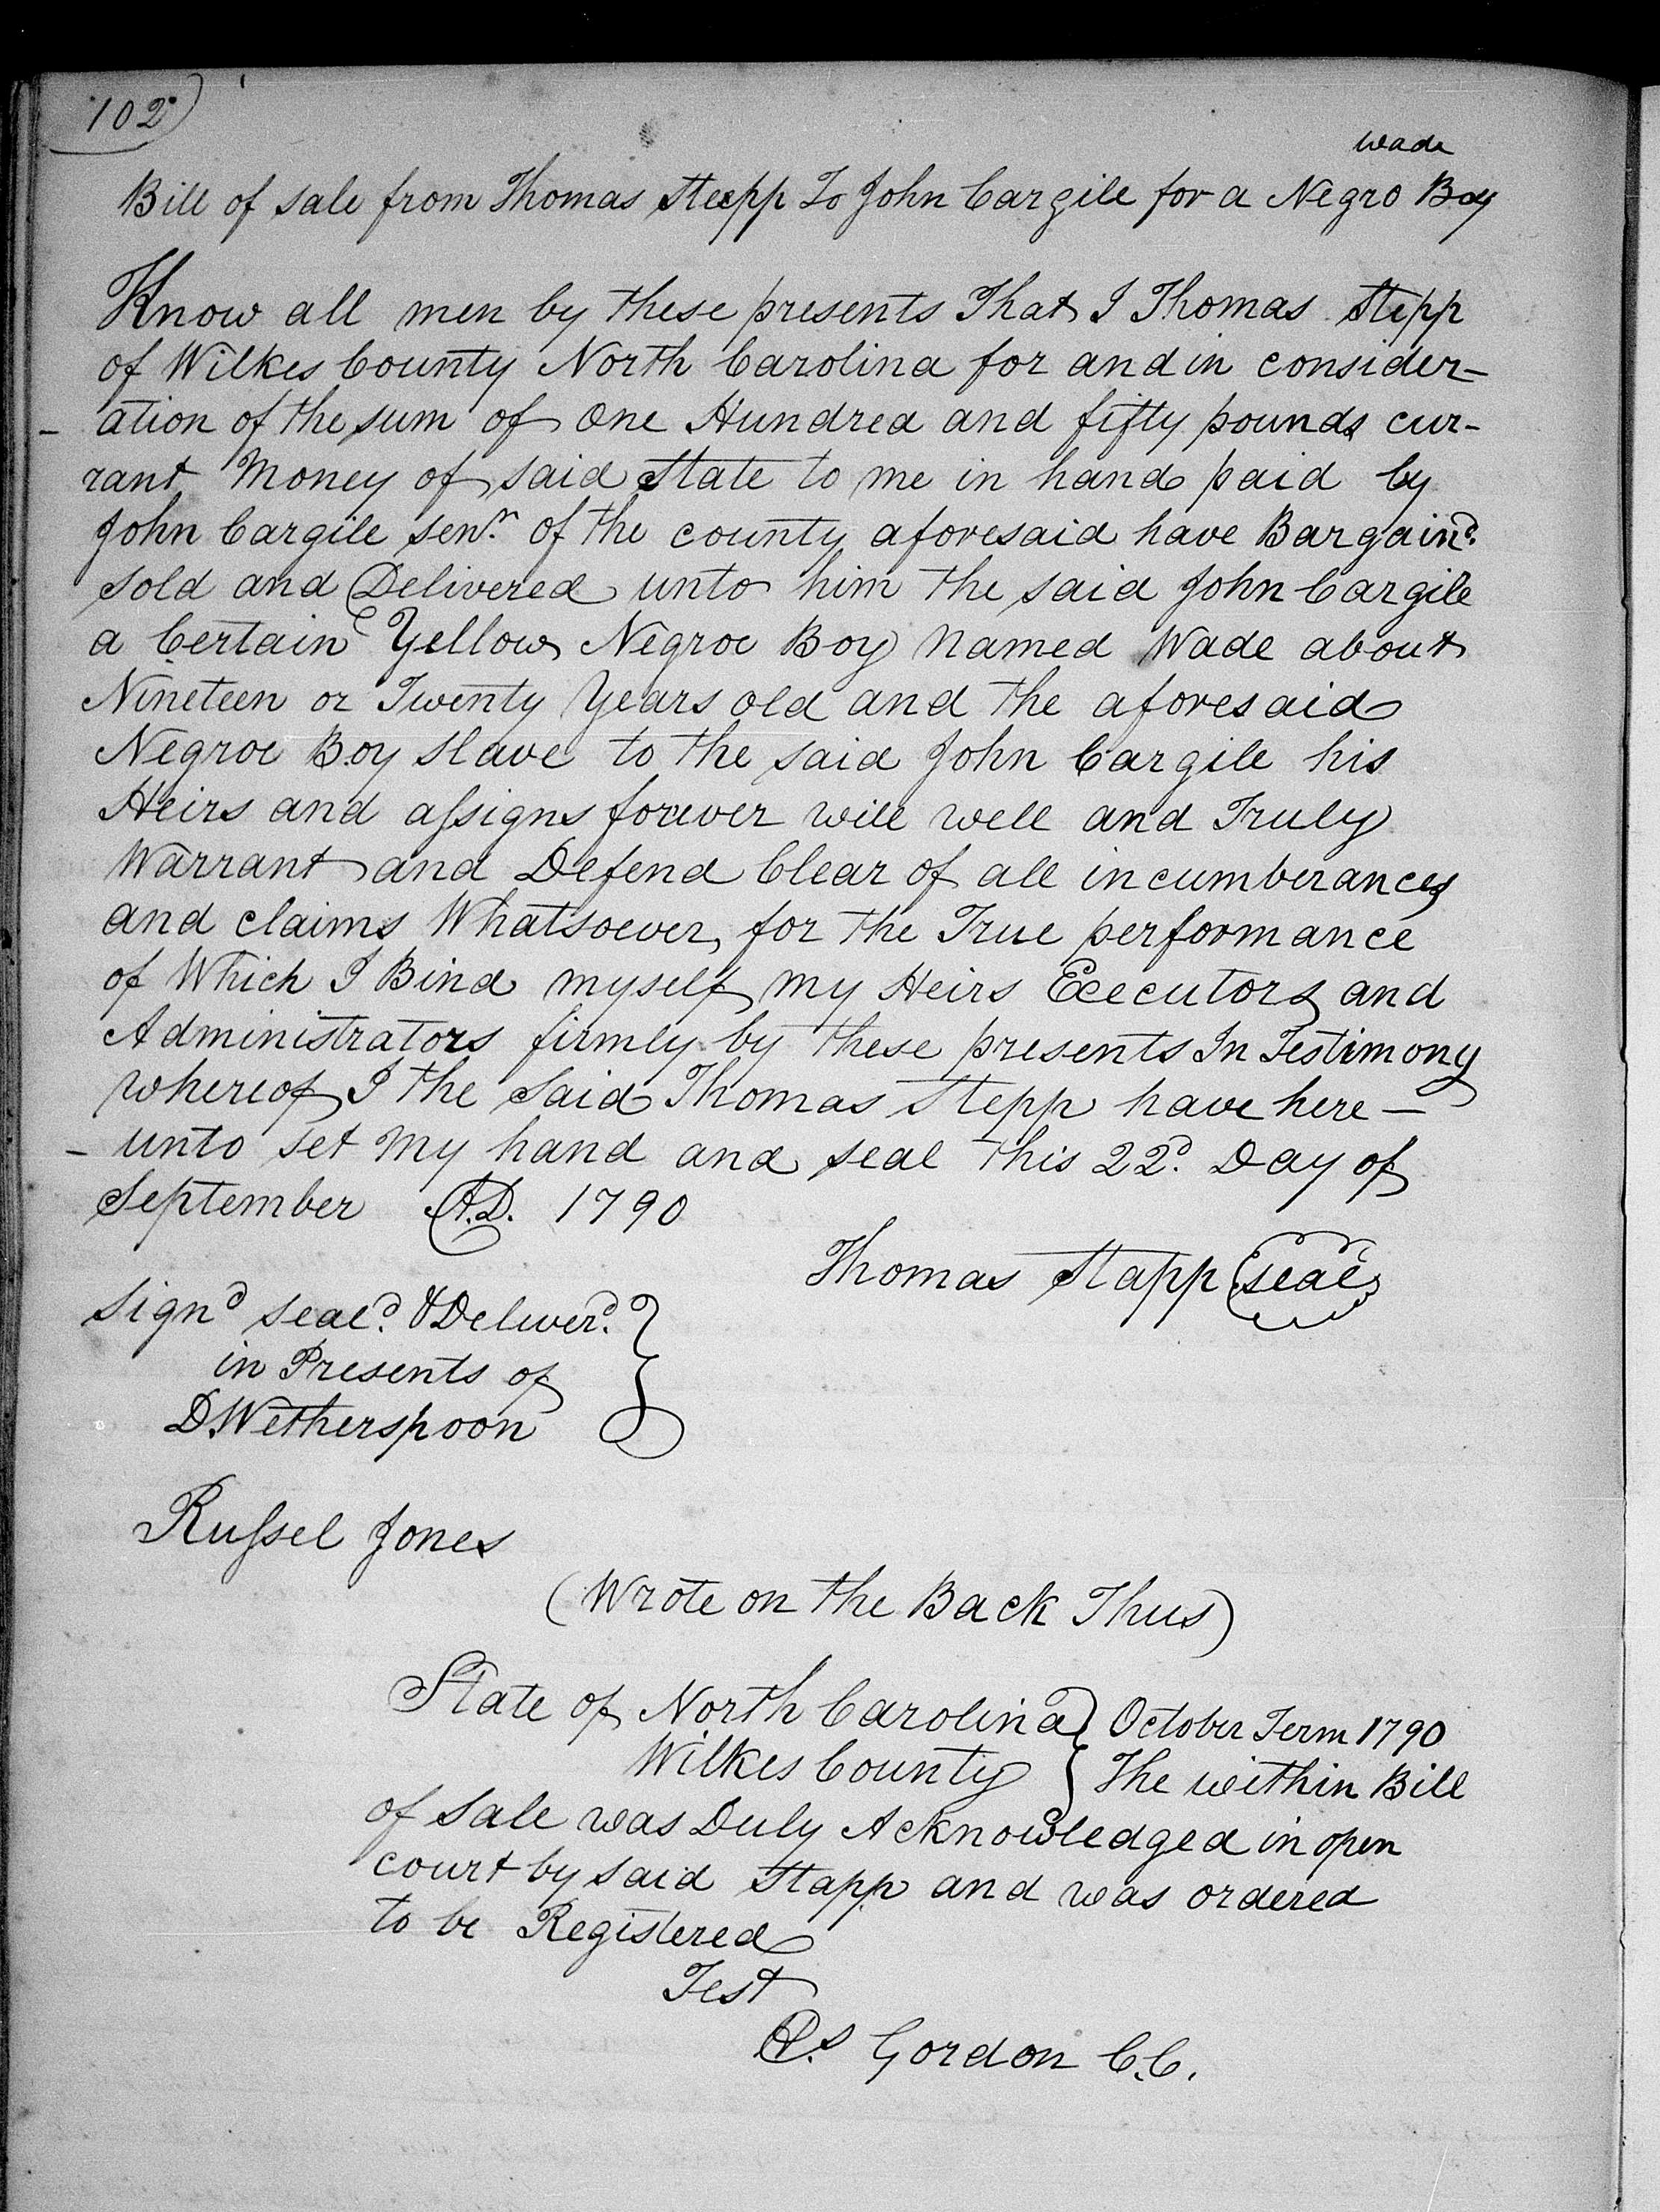 102)
Wade
Bill of sale from Thomas Stepp To John Cargile for a Negro Boy
Know all men by these presents That I Thomas Stepp
of Wilkes County North Carolina for and in consider-
- ation of the sum of One Hundred and fifty pounds cur-
rant Money of said State to me in hand paid by
John Cargile senr. of the county aforesaid have Bargaind.
sold and Delivered unto him the said John Cargile
a Certain Yellow Negroe Boy Named Wade about
Nineteen or Twenty Years old and the aforesaid
Negroe Boy Slave to the said John Cargile his
Heirs and assigns forever will well and Truly
Warrant and Defend Clear of all incumberances
and claims Whatsoever, for the True performance
of Which I Bind myself my Heirs Executors and
Administrators firmly by these presents In Testimony
whereof I the Said Thomas Stepp have here -
- unto set my hand and seal this 22d. Day of
September A.D. 1790
Thomas Stapp seal
Signd seald. & Deliverd. }
in Presents of
D. Wetherspoon
Russel Jones
(Wrote on the Back Thus)
State of North Carolina } October Term 1790
Wilkes County } The within Bill
of sale was Duly Acknowledged in open
court by said Stapp and was ordered
to be Registered
Test
Gordon C.C.